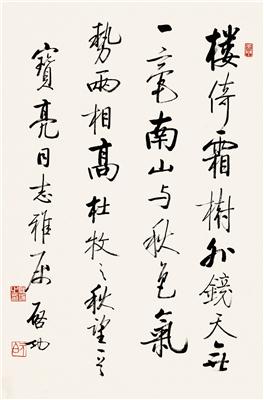 楼倚霜樹外鏡天無
一毫南山与秋色氣
勢兩相高杜牧之秋望一首
寶亮同志雅屬啓功